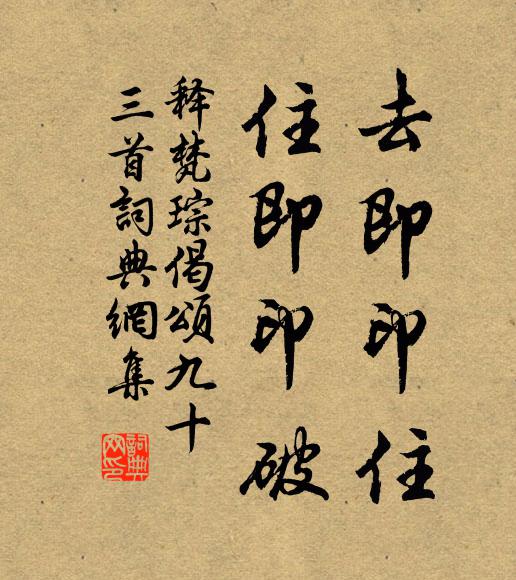 去即印住
住即印破
释梵琮偈頌九十
三首詞典網集
詞典网印